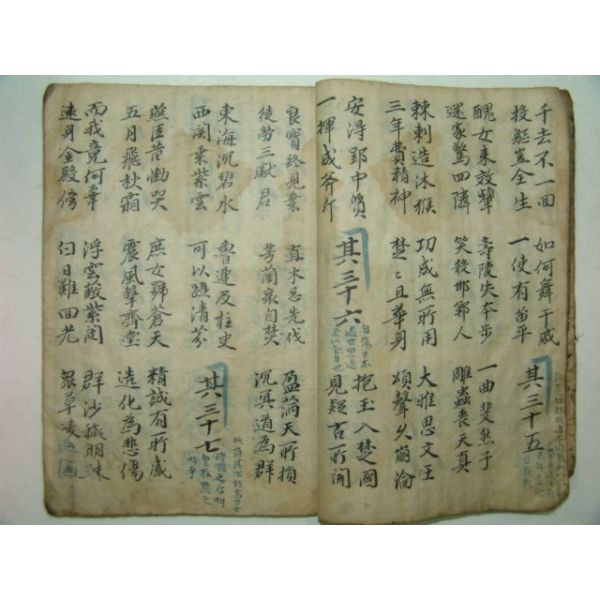 千去不一回
投軀豈全生
如何舞干戚
一使有苗平
其三十五
醜女來效顰
還家驚四隣
壽陵失本步
笑殺邯鄲人
一曲斐然子
雕蟲喪天真
棘刺造沐猴
三年費精神
功成無所用
楚〻且華身
大雅思文王
頌聲久崩淪
安得郢中質
一揮成斧斤
其三十六
抱玉入楚國
見疑古所聞
良寶終見棄
徒勞三獻君
直木忌先伐
芳蘭哀自焚
盈滿天所損
沉冥道為群
東海沉碧水
西關乘紫雲
魯連及柱史
可以躡清芬
其三十七
燕臣昔慟哭
五月飛秋霜
庶女號蒼天
震風擊齊堂
精誠有所感
造化為悲傷
而我竟何辜
遠身金殿傍
浮雲蔽紫闥
白日難回光
群沙穢明珠
衆草凌